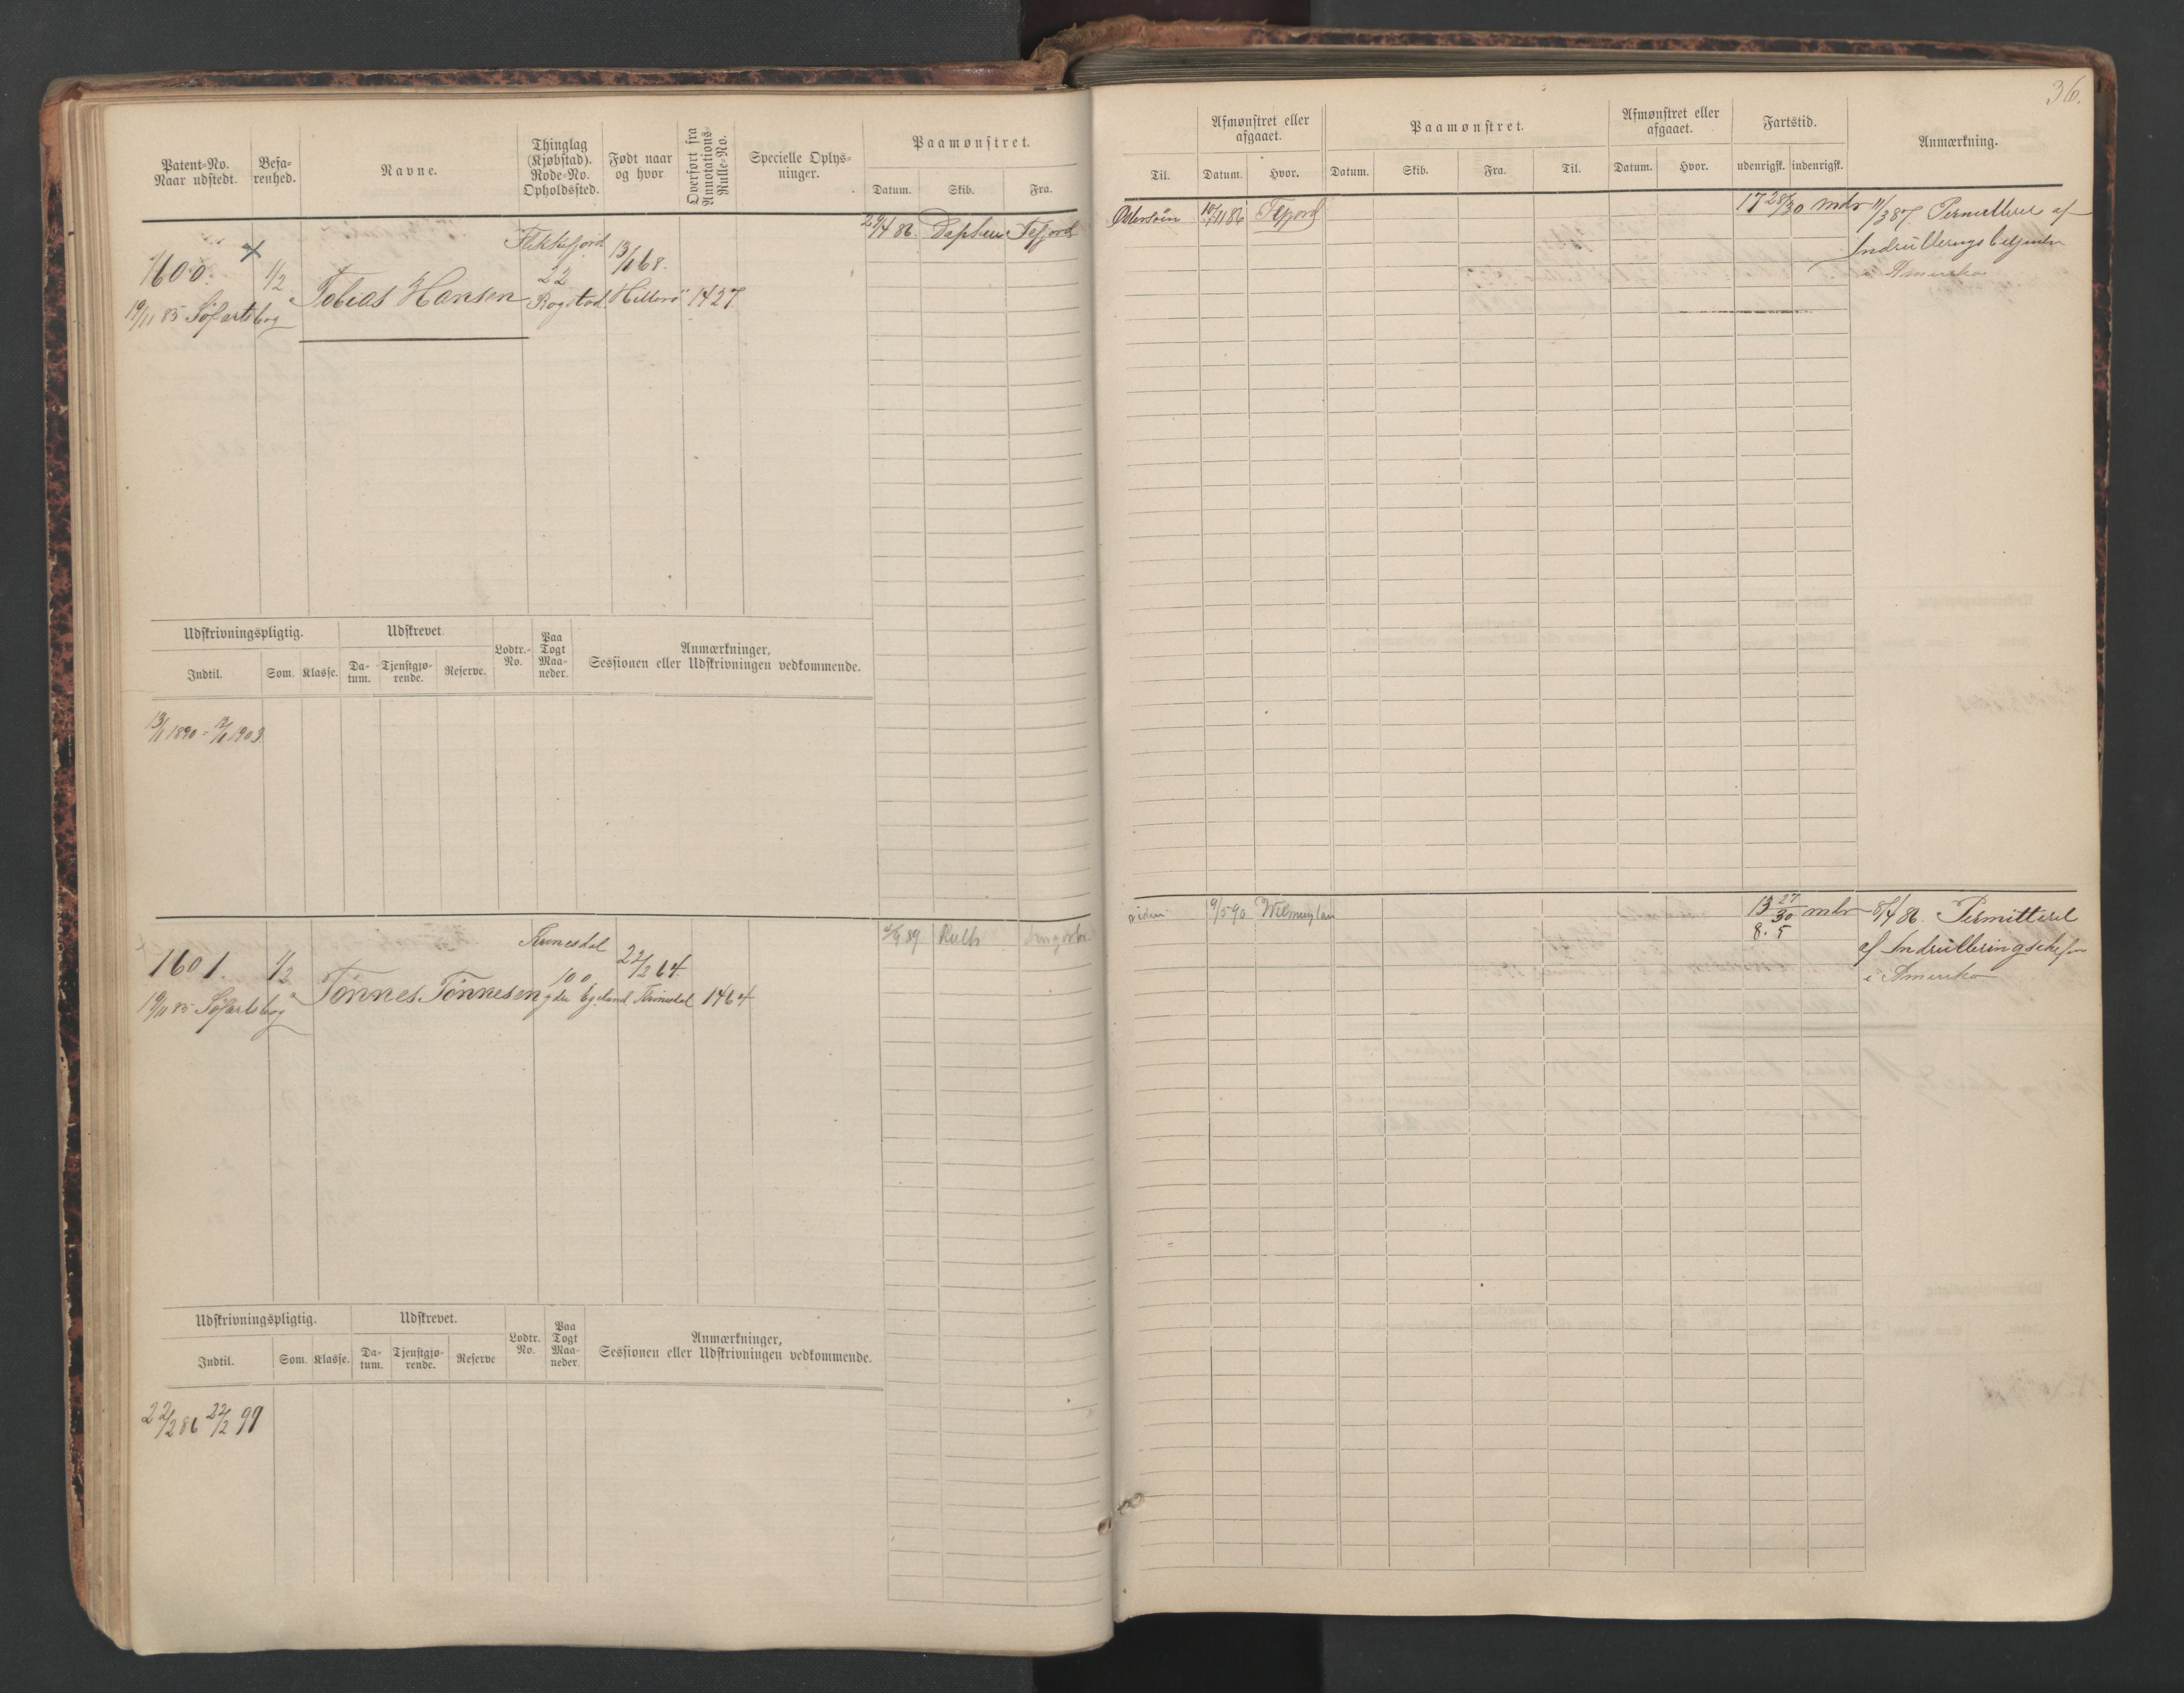 36.
Patent-No.
Naar udstedt.
Befa-
renhed.
Navne.
Thinglag
(Kjøbstad).
Rode-No.
Opholdssted.
Født naar
og hvor
Overført fra
Annotations-
Rulle-No.
Specielle Oplys-
ninger.
Paamønstret.
Datum.
Skib.
Fra.
Til.
Afmønstret eller
afgaaet.
Datum.
Hvor.
Paamønstret.
Datum.
Skib.
Fra.
Til.
Afmønstret eller
afgaaet.
Datum.
Hvor.
Fartstid.
udenrigsk.
indenrigsk.
Anmærkning.
1600.
19/11 85 Søfartsbog
1/2
Tobias Hansen
Flekkefjord
22
Rogstad
13/11 68.
Hitterø
1427
29/4 86.
Fefjord
Østersøen
10/11 86
Fefjord
17 28/30 mdr
11/3 87. Permitteret af
Indrulleringsbetjenten
i Amerika
Udskrivningspligtig.
Indtil.
Som.
Klasse.
Udskrevet.
Da-
tum.
Tjenstgjø-
rende.
Reserve.
Lodtr.-
No.
Paa
Togt
Maa-
neder.
Anmærkninger,
Sessionen eller Udskrivningen vedkommende.
13/11 1890 - 13/11 1903.
1601.
19/11 85 Søfartsbog
1/2
Tønnes Tønnesen
Kvinesdal
100
ydre Egeland
22/2 64
Kvinesdal
1464
Ruth
9/5 90
13 27/30 mdr
8. 5
8/4 86. Permitteret
af Indrulleringschefen
i Amerika
Udskrivningspligtig.
Indtil.
Som.
Klasse.
Udskrevet.
Da-
tum.
Tjenstgjø-
rende.
Reserve
Lodtr.
No.
Paa
Togt
Maa-
neder.
Anmærkninger,
Sessionen eller Udskrivningen vedkommende.
22/2 86 22/2 99